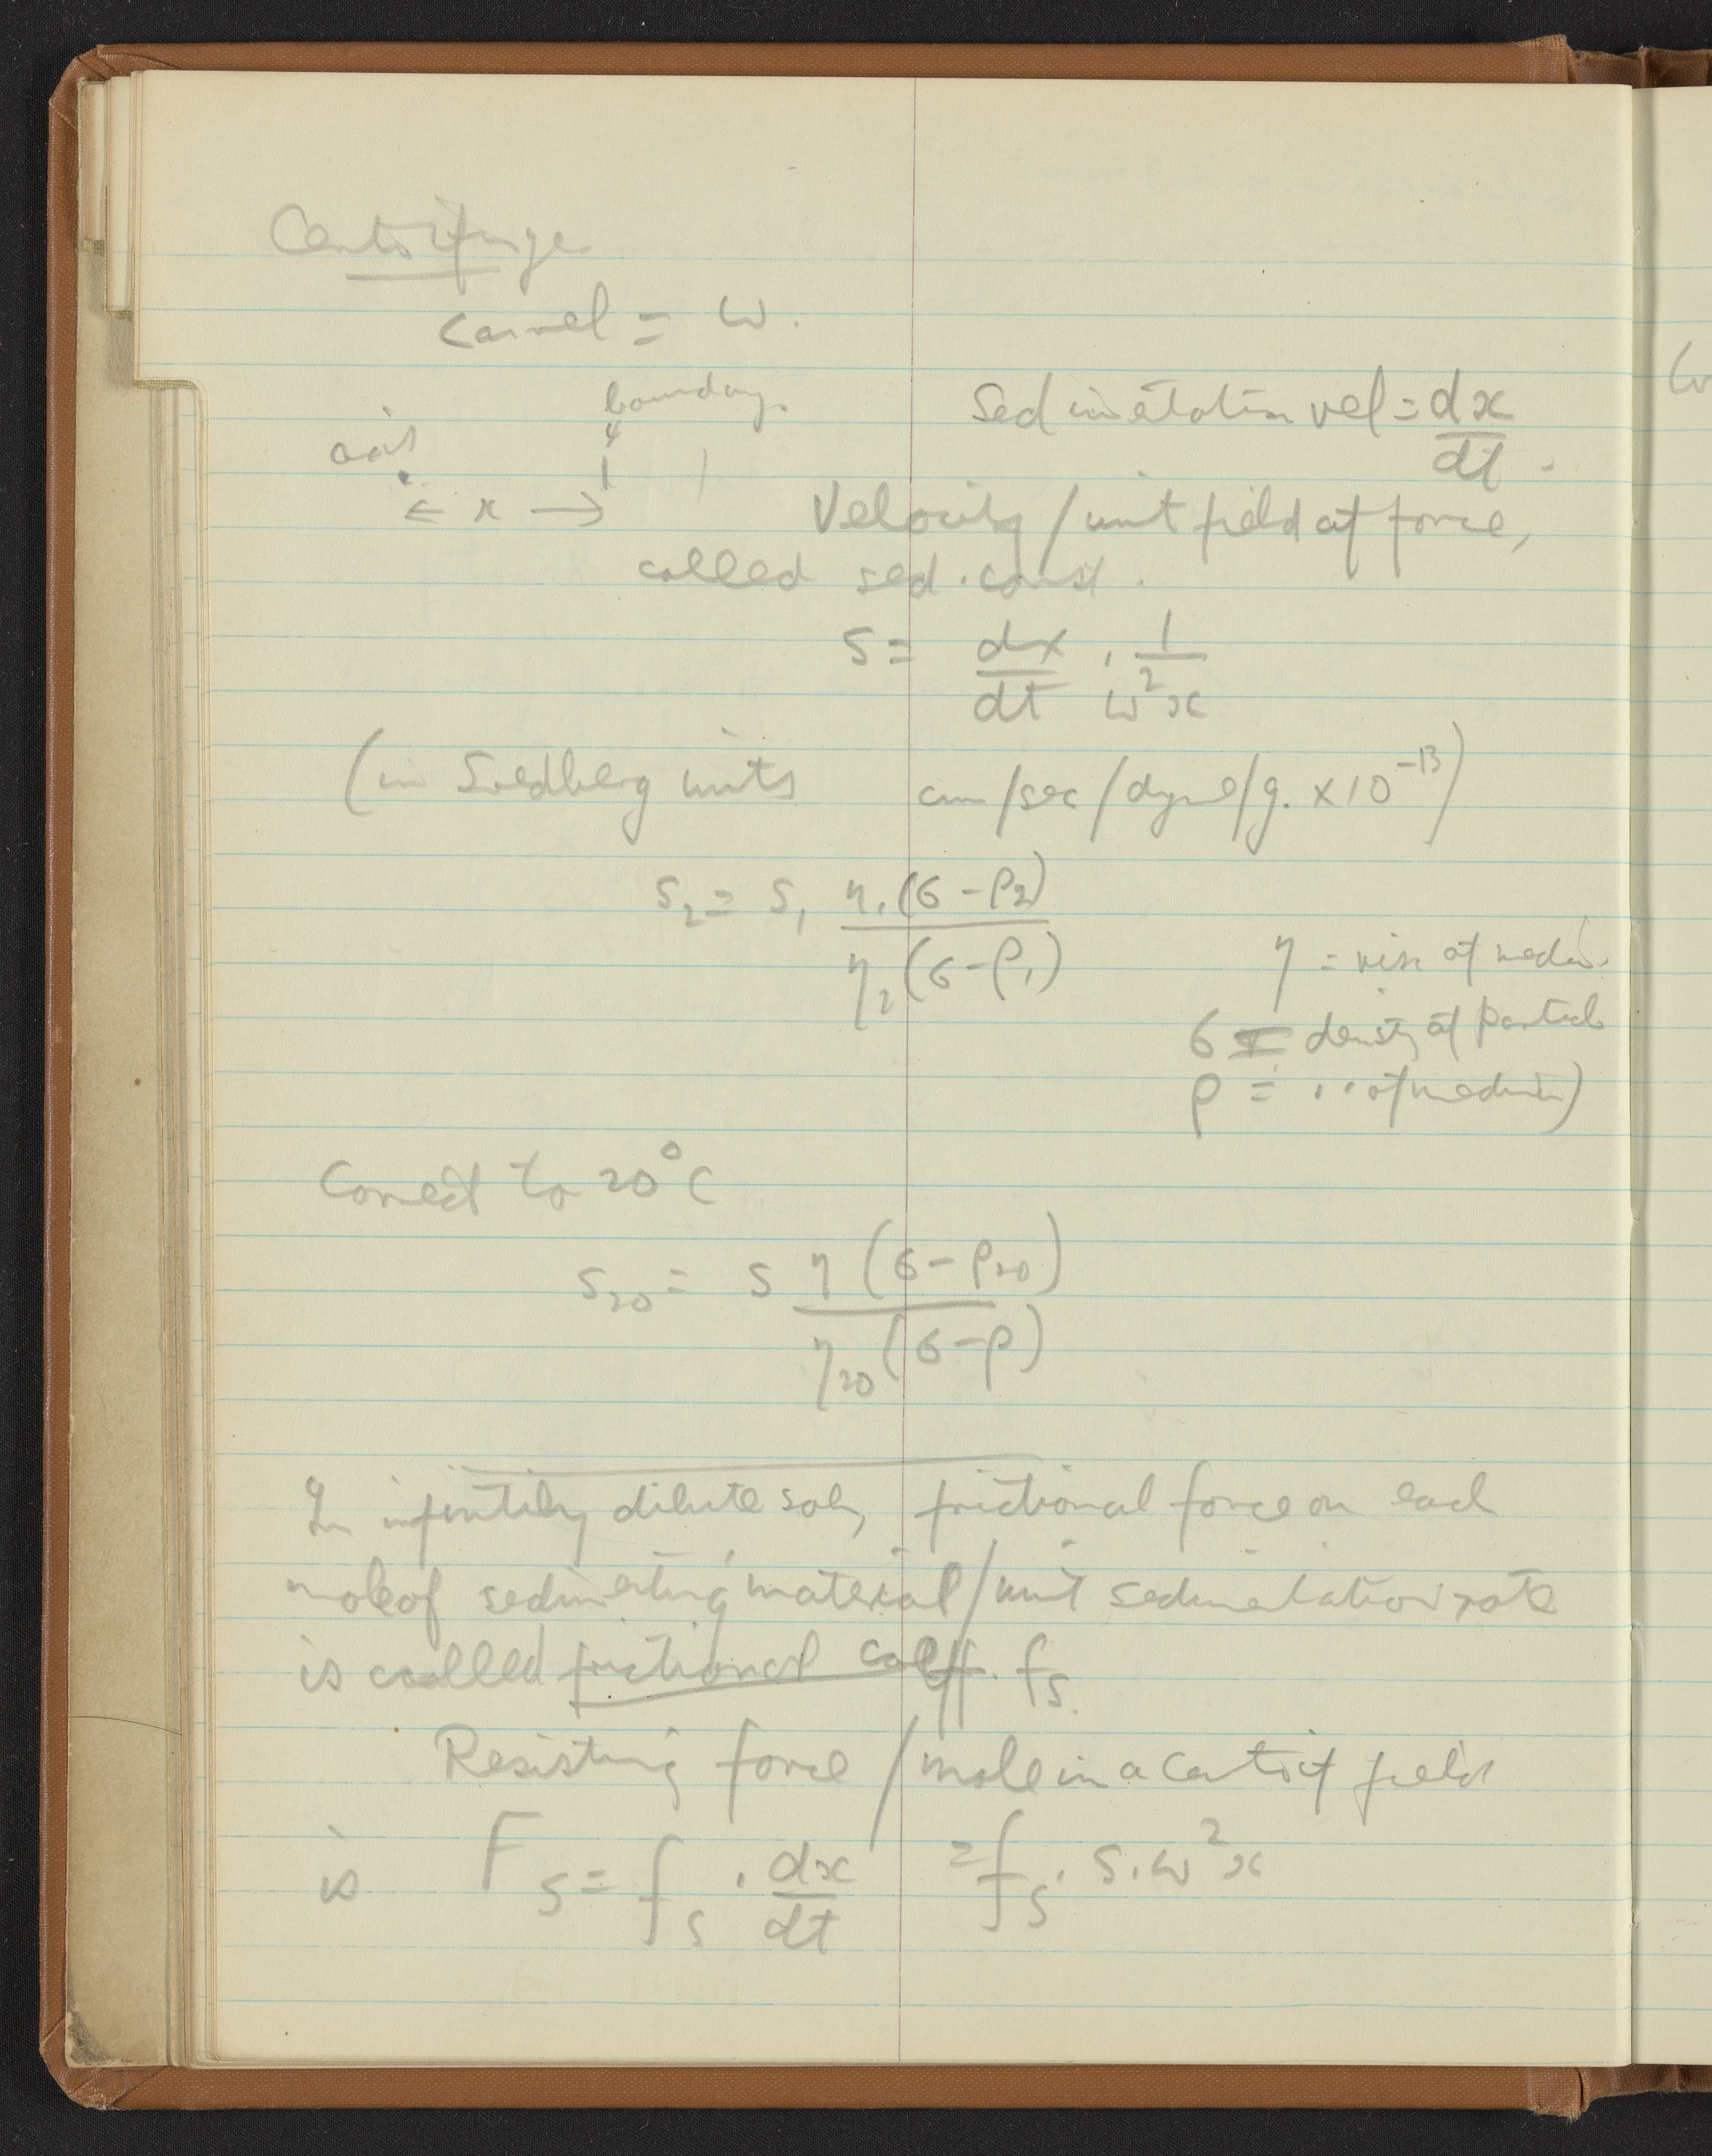 Centrifuge
= ω.
boundary
axis
← x →
Sedimentation vel = dx/dt.
Velocity / unit field of force,
called sed. const.
S = dx/dt · 1/ω²x
(in Svedberg units cm/sec/dyne/g. × 10⁻¹³)
S₂ = S₁ η₁(σ-ρ₂) / η₂(σ-ρ₁)
η = visc of medium.
σ = density of particle
ρ = " of medium)
Correct to 20°C
S₂₀ = S η (σ-ρ₂₀) / η₂₀ (σ-ρ)
In infinitely dilute soln, frictional force on each
mole of sedimenting material / unit sedimentation rate
is called frictional coeff. fₛ
Resisting force / mole in a centrif field
is Fₛ = fₛ · dx/dt = fₛ · S · ω²x